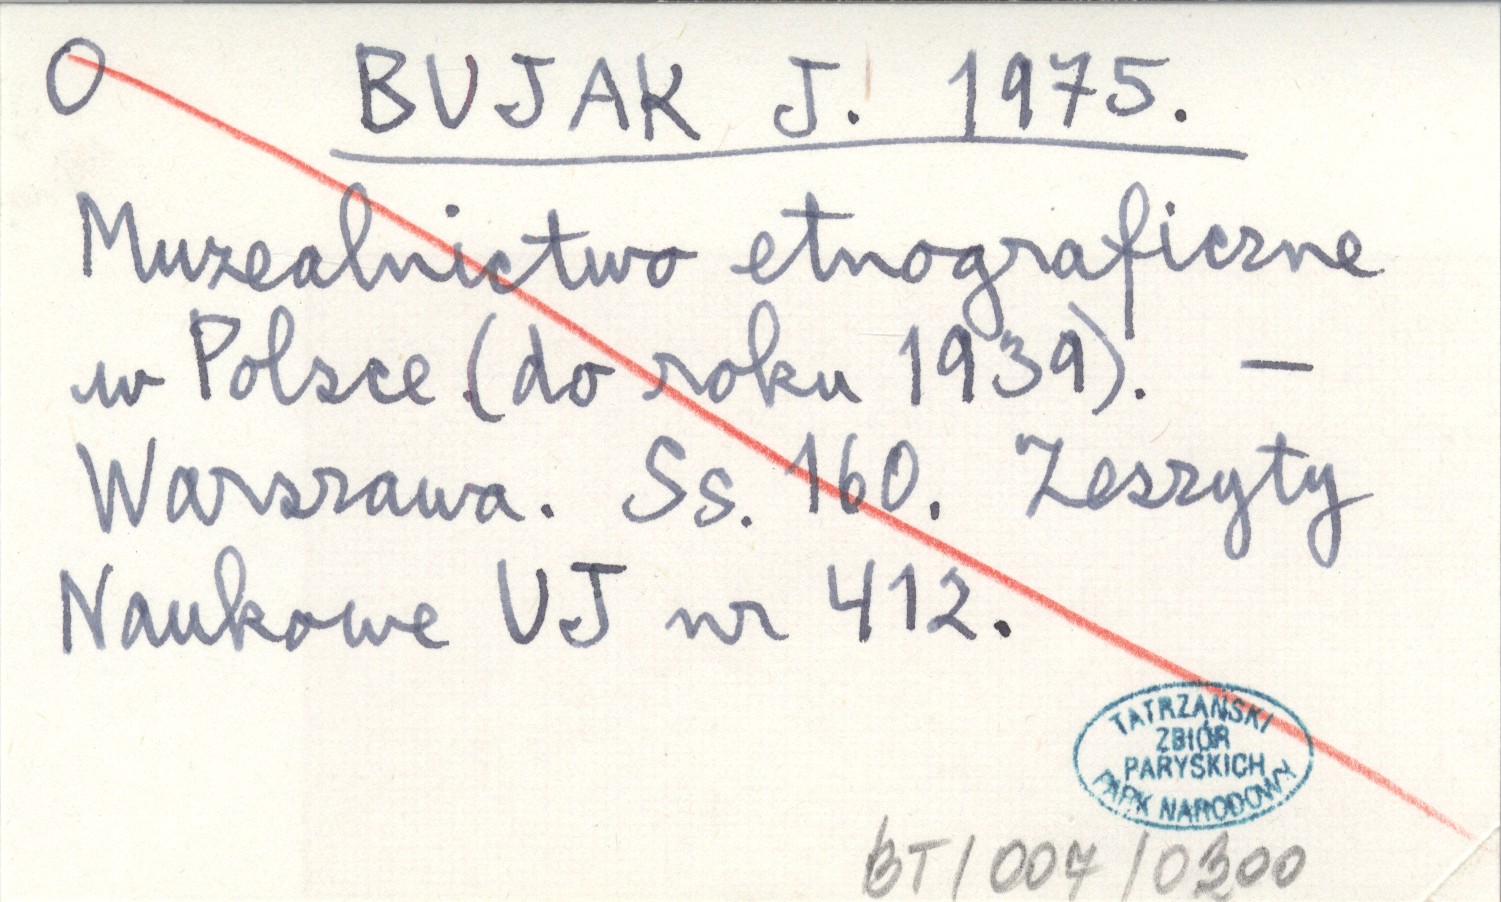 O BUJAK J. 1975.
Muzealnictwo etnograficzne
w Polsce (do roku 1939). —
Warszawa. Ss. 160. Zeszyty
Naukowe UJ nr 412.
TATRZAŃSKI
ZBIÓR
PARYSKICH
PARK NARODOWY
BT/007/0300